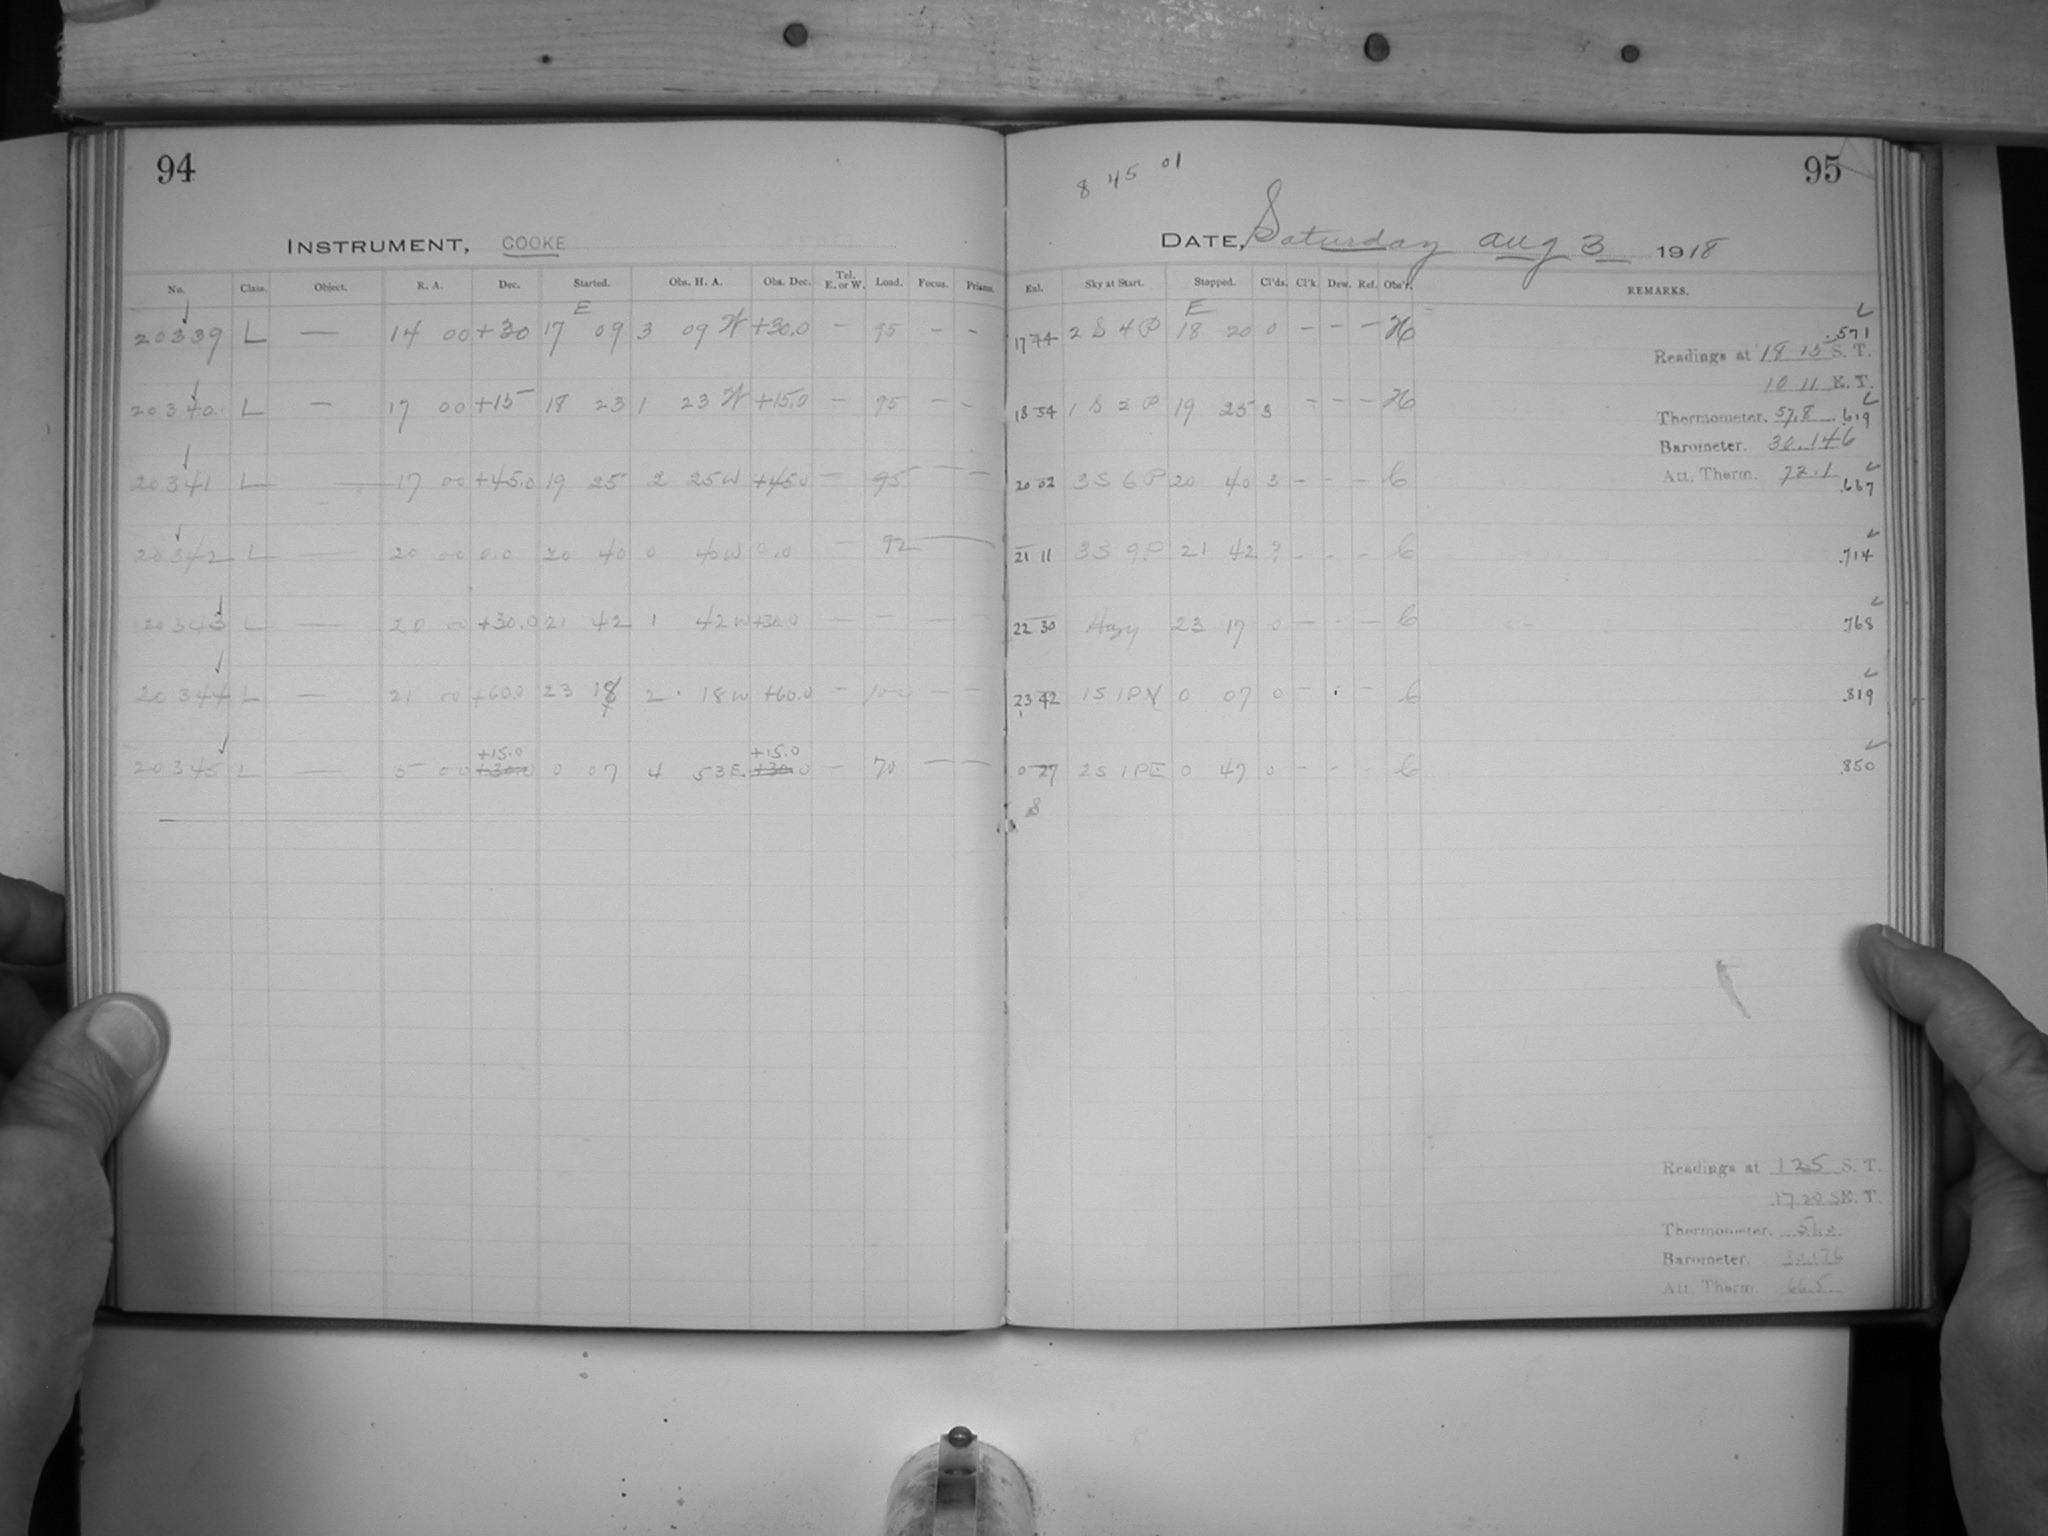 94
INSTRUMENT, COOKE
No. Class. Object. R. A. Dec. Started. Obs. H. A. Obs. Dec. Tel. E. or W. Load. Focus. Prisms.
E
20339 L — 14 00 +30 17 09 3 09 W +30.0 — 95 — —
20340 L — 17 00 +15 18 23 1 23 W +15.0 — 95 — —
20341 L — 17 00 +45.0 19 25 2 25 W +45.0 — 95 — —
20342 L — 20 00 0.0 20 40 0 40 W 0.0 — 92 —
20343 L — 20 00 +30.0 21 42 1 42 W +30.0 — — — —
20344 L — 21 00 +60.0 23 18 2 18 W +60.0 — 100 — —
+15.0 +15.0
20345 L — 5 00 +30.0 0 07 4 53 E +30.0 — 70 — —
8 45 01
95
DATE, Saturday Aug 3 1918
Exl. Sky at Start. Stopped. Cl'ds. Cl'k. Dew. Ref. Obs'r. REMARKS.
E
17 44 2 S 4 P 18 20 0 — — — H .571
Readings at 18 15 S. T.
10 11 E. T.
18 54 1 S 2 P 19 25 3 — — — H
Thermometer. 57.8 .619
Barometer. 30.146
Att. Therm. 72.1
20 02 3 S 6 P 20 40 3 — — — C .667
21 11 3 S 9 P 21 42 3 — — — C .714
22 30 Hazy 23 17 0 — — — C .768
23 42 1 S 1 P 0 07 0 — — — C .819
0 27 2 S 1 P E 0 47 0 — — — C .850
Readings at 1 25 S. T.
17 20 E. T.
Thermometer. 51.0
Barometer. 30.176
Att. Therm. 66.5